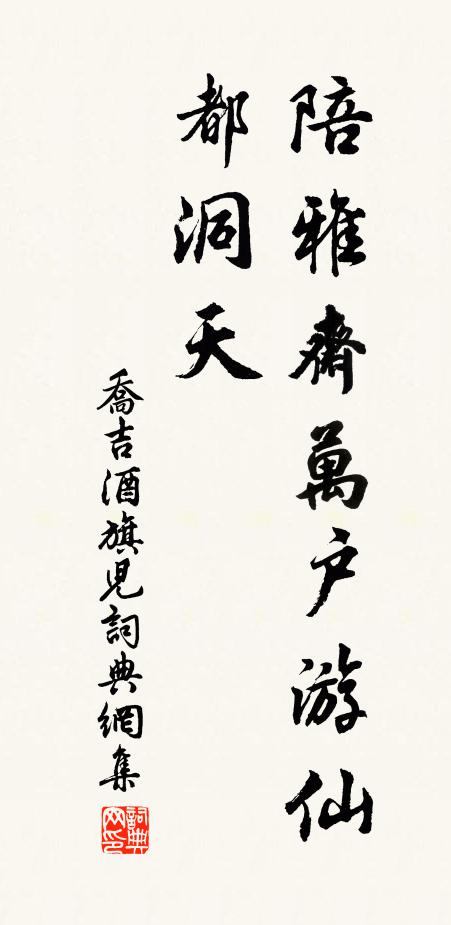 陪雅齋萬户游仙
都洞天
喬吉酒旗児詞典網集
詞典
网印